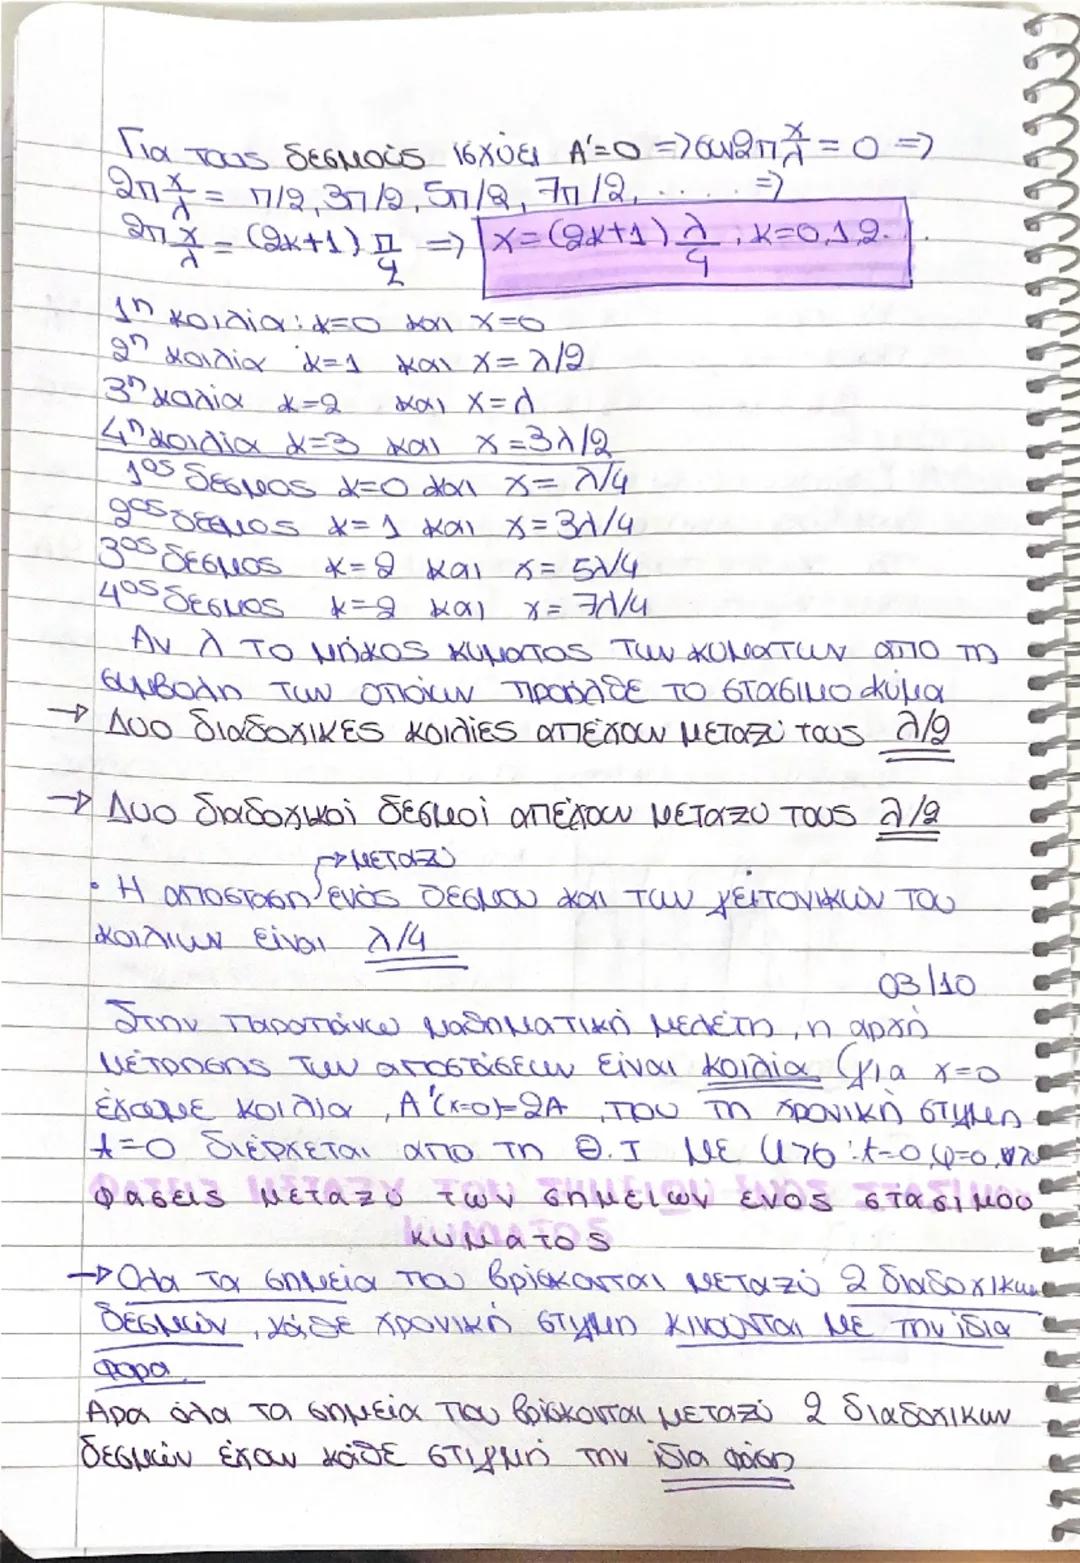 Για τους δεσμούς ισχύει Α'=0 => συν2π x/λ = 0 =>
2π x/λ = π/2, 3π/2, 5π/2, 7π/2, ..... =>
2π x/λ = (2κ+1) π/2 => x=(2κ+1) λ/4, κ=0,1,2...
1η κοιλία: κ=0 και x=0
2η κοιλία κ=1 και x= λ/2
3η καλία κ=2 και x=λ
4η κοιλία κ=3 και x=3λ/2
1ος δεσμος κ=0 και x= λ/4
2ος δεσμος κ=1 και x=3λ/4
3ος δεσμος κ=2 και x= 5λ/4
4ος δεσμος κ=2 και x= 7λ/4
Αν λ το μήκος κυματος των κυματων απο τη
συμβολη των οποίων προηλθε το στασιμο κύμα
→ Δυο διαδοχικές κοιλίες απέχουν μεταξύ τους λ/2
→ Δυο διαδοχικοί δεσμοί απέχουν μεταξυ τους λ/2
→ μεταξύ
• Η αποσταση ενός δεσμου και των γειτονικών του
κοιλιων είναι λ/4
03/10
Στην παραπάνω μαθηματική μελέτη, η αρχή
μέτρησης των αποστάσεων είναι κοιλία (για x=0
έχουμε κοιλία, Α'(x=0)=2Α, που τη χρονική στιγμη
t=0 διέρχεται απο τη Θ.Ι με υ>0: t=0, φ=0,
φασεις μεταξυ των σημειων ενος στασιμου
κυματος
→ Ολα τα σημεία που βρίσκονται μεταξύ 2 διαδοχικων
δεσμών, κάθε χρονική στιγμη κινούνται με την ίδια
φορα.
Αρα όλα τα σημεία που βρίσκονται μεταξύ 2 διαδοχικων
δεσμών έχουν κάθε στιγμή την ίδια φάση